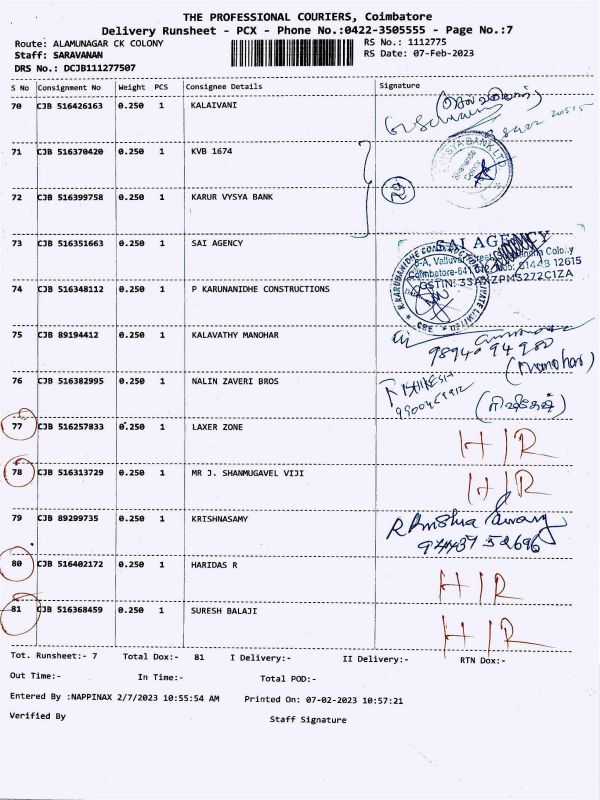 THE PROFESSIONAL COURIERS, Coimbatore
Delivery Runsheet - PCX - Phone No.:0422-3505555 - Page No.:7
Route: ALAMUNAGAR CK COLONY RS No.: 1112775
Staff: SARAVANAN RS Date: 07-Feb-2023
DRS No.: DCJB111277507
S No Consignment No Weight PCS Consignee Details Signature
70 CJB 516426163 0.250 1 KALAIVANI
71 CJB 516370420 0.250 1 KVB 1674
72 CJB 516399758 0.250 1 KARUR VYSYA BANK
73 CJB 516351663 0.250 1 SAI AGENCY SAI AGENCY
74 CJB 516348112 0.250 1 P KARUNANIDHE CONSTRUCTIONS
75 CJB 89194412 0.250 1 KALAVATHY MANOHAR
(Manohar)
76 CJB 516382995 0.250 1 NALIN ZAVERI BROS RISHIKESH
(ரிஷிகேஷ்)
77 CJB 516257833 0.250 1 LAXER ZONE H/R
78 CJB 516313729 0.250 1 MR J. SHANMUGAVEL VIJI H/R
79 CJB 89299735 0.250 1 KRISHNASAMY
94437 52696
80 CJB 516402172 0.250 1 HARIDAS R H/R
81 CJB 516368459 0.250 1 SURESH BALAJI H/R
Tot. Runsheet:- 7 Total Dox:- 81 I Delivery:- II Delivery:- RTN Dox:-
Out Time:- In Time:- Total POD:-
Entered By :NAPPINAX 2/7/2023 10:55:54 AM Printed On: 07-02-2023 10:57:21
Verified By Staff Signature